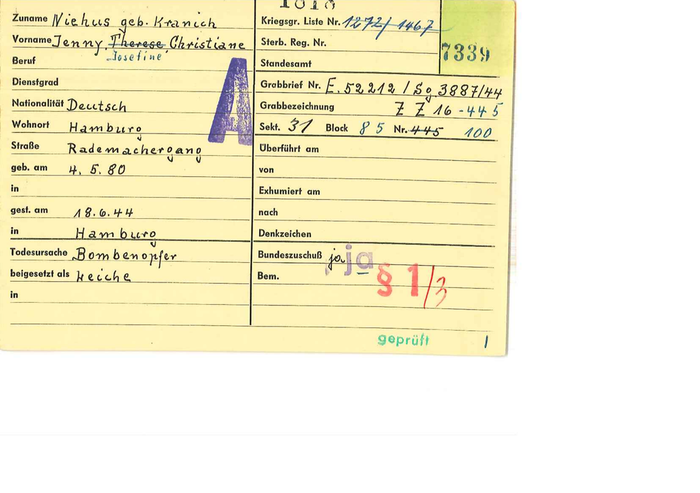 Zuname Niehus geb. Kranich
Vorname Jenny, Therese Christiane
Josefine
Beruf
Dienstgrad
Nationalität Deutsch
Wohnort Hamburg
Straße Rademachergang
geb. am 4. 5. 80
in
gest. am 18.6.44
in Hamburg
Todesursache Bombenopfer
beigesetzt als Leiche
in
A
Kriegsgr. Liste Nr. 1272/1467
7339
Sterb. Reg. Nr.
Standesamt
Grabbrief Nr. E. 52212 / Sg 3887/44
Grabbezeichnung Z Z 16 -445
Sekt. 31 Block 85 Nr. 445 100
Überführt am
von
Exhumiert am
nach
Denkzeichen
Bundeszuschuß ja ja
Bem. § 1/3
geprüft 1